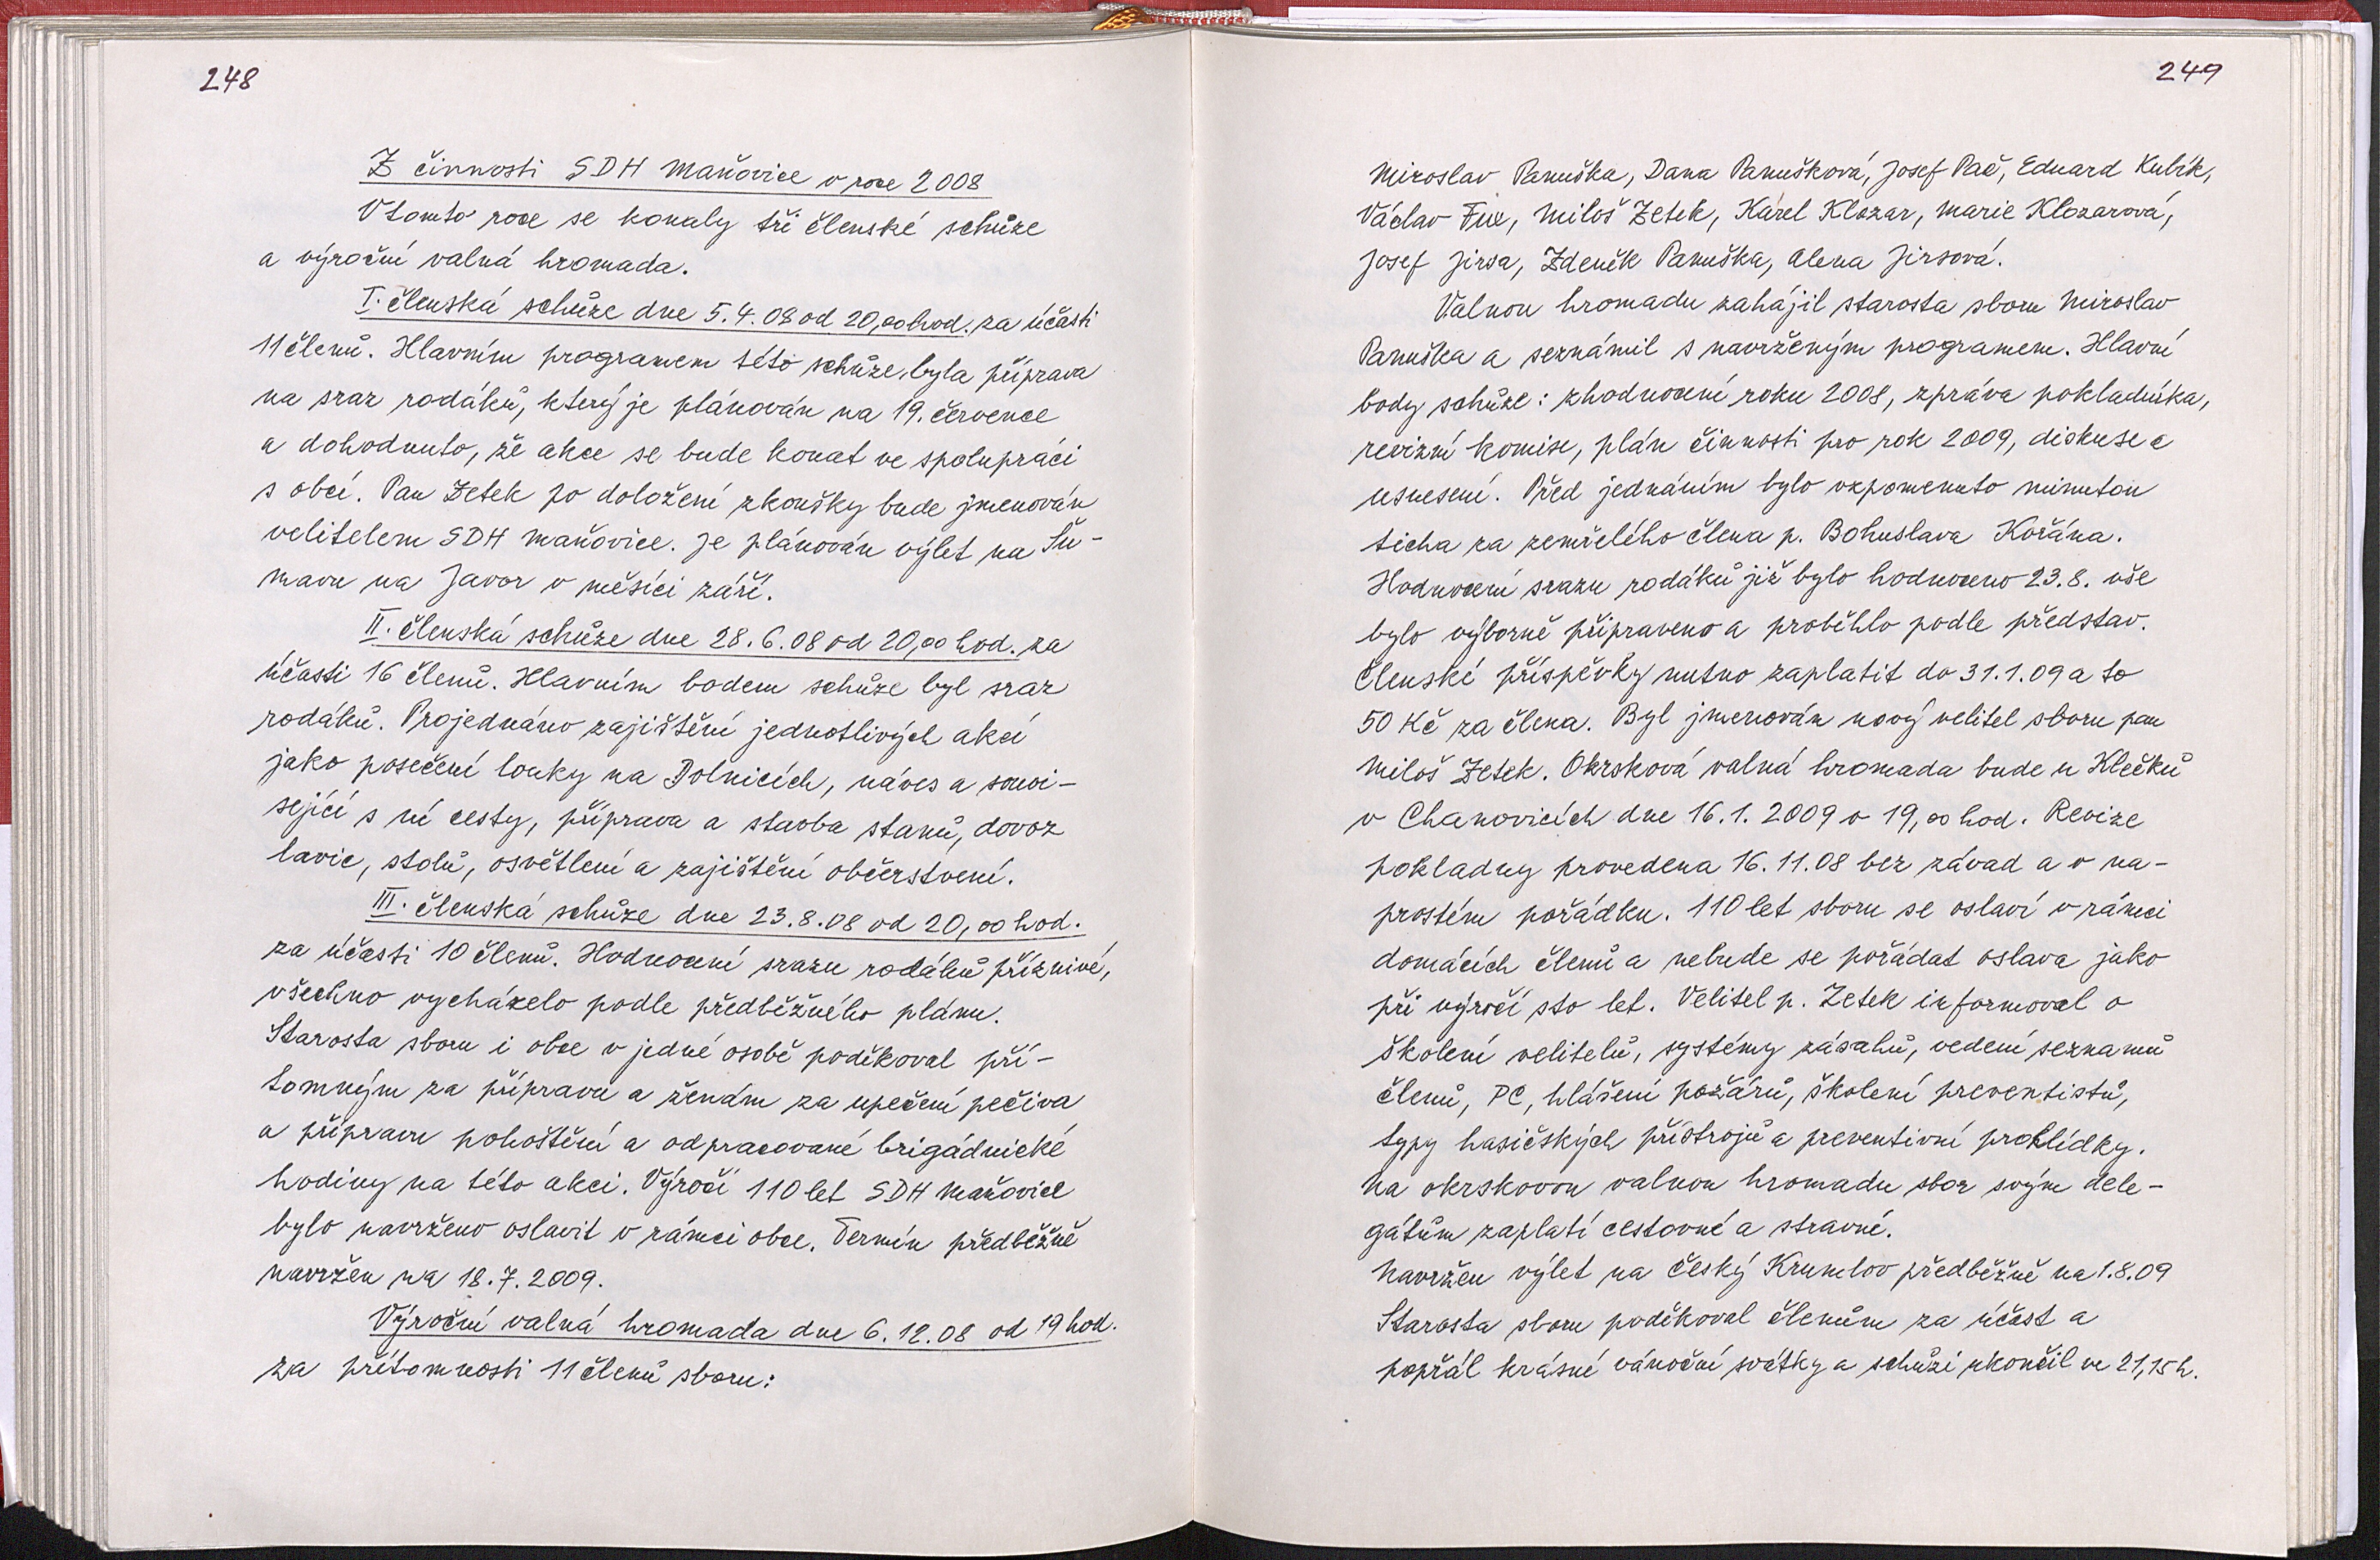 248
Z činnosti SDH Maňovice v roce 2008
V tomto roce se konaly tři členské schůze
a výroční valná hromada.
I. členská schůze dne 5.4.08 od 20,00 hod. za účasti
11 členů. Hlavním programem této schůze byla příprava
na sraz rodáků, který je plánován na 19. července
a dohodnuto, že akce se bude konat ve spolupráci
s obcí. Pan Zetek po doložení zkoušky bude jmenován
velitelem SDH Maňovice. Je plánován výlet na Šu-
mavu na Javor v měsíci září.
II. členská schůze dne 28.6.08 od 20,00 hod. za
účasti 16 členů. Hlavním bodem schůze byl sraz
rodáků. Projednáno zajištění jednotlivých akcí
jako posečení louky na Dolnicích, náves a souvi-
sející s ní cesty, příprava a stavba stanů, dovoz
lavic, stolů, osvětlení a zajištění občerstvení.
III. členská schůze dne 23.8.08 od 20,00 hod.
za účasti 10 členů. Hodnocení srazu rodáků příznivé,
všechno vycházelo podle předběžného plánu.
Starosta sboru i obce v jedné osobě poděkoval pří-
tomným za přípravu a ženám za upečení pečiva
a přípravu pohoštění a odpracované brigádnické
hodiny na této akci. Výročí 110 let SDH Maňovice
bylo navrženo oslavit v rámci obce. Termín předběžně
navržen na 18.7.2009.
Výroční valná hromada dne 6.12.08 od 19 hod.
za přítomnosti 11 členů sboru:
249
Miroslav Panuška, Dana Panušková, Josef Pač, Eduard Kubík,
Václav Fux, Miloš Zetek, Karel Klozar, Marie Klozarová,
Josef Jirsa, Zdeněk Panuška, Alena Jirsová.
Valnou hromadu zahájil starosta sboru Miroslav
Panuška a seznámil s navrženým programem. Hlavní
body schůze: zhodnocení roku 2008, zpráva pokladníka,
revizní komise, plán činnosti pro rok 2009, diskuse a
usnesení. Před jednáním bylo vzpomenuto minutou
ticha za zemřelého člena p. Bohuslava Kořána.
Hodnocení srazu rodáků již bylo hodnoceno 23.8. vše
bylo výborně připraveno a proběhlo podle představ.
Členské příspěvky nutno zaplatit do 31.1.09 a to
50 Kč za člena. Byl jmenován nový velitel sboru pan
Miloš Zetek. Okrsková valná hromada bude u Klečků
v Chanovicích dne 16.1.2009 v 19,00 hod. Revize
pokladny provedena 16.11.08 bez závad a v na-
prostém pořádku. 110 let sboru se oslaví v rámci
domácích členů a nebude se pořádat oslava jako
při výročí sto let. Velitel p. Zetek informoval o
školení velitelů, systémy zásahů, vedení seznamů
členů, PC, hlášení požárů, školení preventistů,
typy hasičských přístrojů a preventivní prohlídky.
Na okrskovou valnou hromadu sbor svým dele-
gátům zaplatí cestovné a stravné.
Navržen výlet na Český Krumlov předběžně na 1.8.09
Starosta sboru poděkoval členům za účast a
popřál krásné vánoční svátky a schůzi ukončil ve 21,15 h.